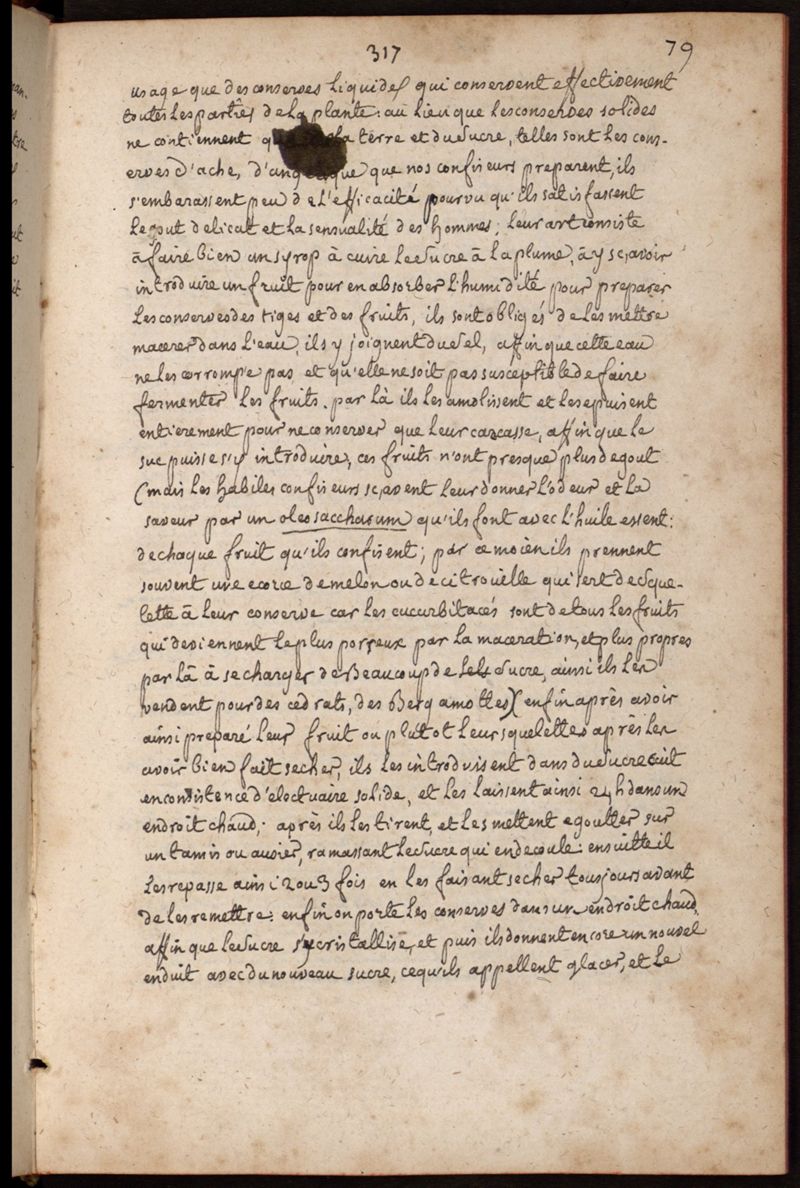 317 79
usage que des conserves liquides qui conservent effectivement
toutes les parties de la plante: au lieu que les conserves solides
ne contiennent la terre et du sucre, telles sont les con-
serves d'ache, d'angelique que nos confiseurs preparent, ils
s'embarassent peu de l'efficacité pourvu qu'ils satisfassent
le gout delicat et la sensualité des hommes; leur art consiste
à faire bien un syrop à cuire le sucre à la plume, à y sçavoir
introduire un fruit pour en absorber l'humidité pour preparer
les conserves des tiges et des fruits, ils sont obligés de les mettre
macerer dans l'eau, ils y joignent du sel, affin que cette eau
ne les corrompe pas et qu'elle ne soit pas susceptible de faire
fermenter les fruits. par là ils les amolissent et les epuisent
entierement pour ne conserver que leur carcasse, affin que le
suc puisse s'y introduire, ces fruits n'ont presque plus de gout
(mais les habiles confiseurs sçavent leur donner l'odeur et la
saveur par un oleo saccharum qu'ils font avec l'huile essent:
de chaque fruit qu'ils confisent; par ce moien ils prennent
souvent une ecorce de melon ou de citrouelle qui sert de sque-
lette à leur conserve car les cucurbitacés sont de tous les fruits
qui deviennent le plus poreux par la maceration, et plus propres
par là à se charger de beaucoup de sucre, ainsi ils les
vendent pour des cedrats, des bergamottes) enfin après avoir
ainsi preparé leur fruit ou plutot leur squelettes après les
avoir bien fait secher, ils les introduisent dans du sucre cuit
en consistence d'electuaire solide, et les laissent ainsi 24 h dans un
endroit chaud; après ils les tirent, et les mettent egoutter sur
un tamis ou ausier, ramassant le sucre qui en decoule: ensuitte il
les repasse ainsi 2 ou 3 fois en les faisant secher tousjours avant
de les remettre: enfin on porte les conserves dans un endroit chaud,
affin que le sucre s'y cristallise, et puis ils donnent encore un nouvel
enduit avec du nouveau sucre, ce qu'ils appellent glacer, et le